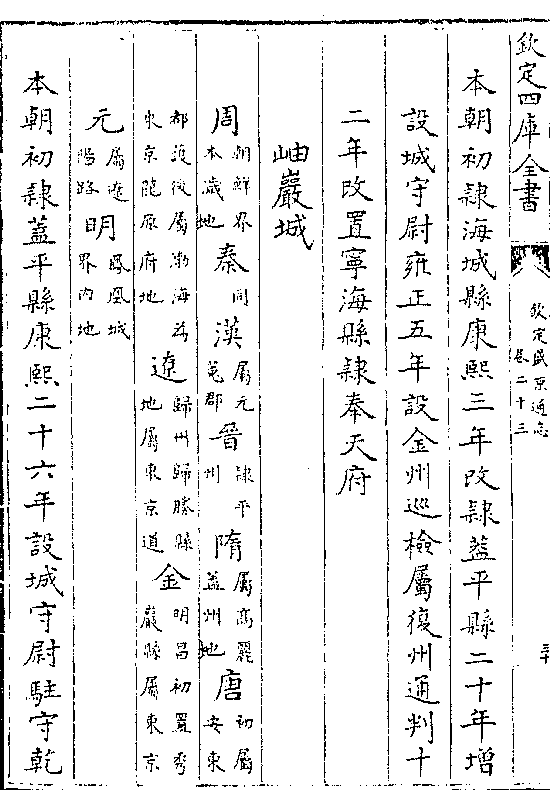 欽定四庫全書
欽定盛京通志
卷二十三
本朝初隸海城縣康熙三年改隸蓋平縣二十年增
設城守尉雍正五年設金州巡檢屬復州通判十
二年改置寧海縣隸奉天府
岫巖城
周朝鮮界本濊地秦同漢屬元菟郡晉隸平州隋屬高麗蓋州地唐初屬安東
都護後屬渤海為東京龍原府地遼歸州歸勝縣地屬東京道金明昌初置秀巖縣屬東京
元屬遼陽路明鳳凰城界內地
本朝初隸蓋平縣康熙二十六年設城守尉駐守乾